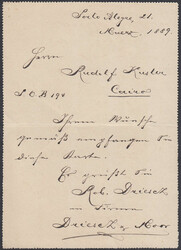 Porto Alegre, 21.
1889
Herrn
Rudolf Kusler
Cairo
P.O.B 194
Ihrem Wunsche
gemäß empfangen Sie
diese Karte.
Es grüßt Sie
Rob. Driesel
in Firma
Driesel & Moor